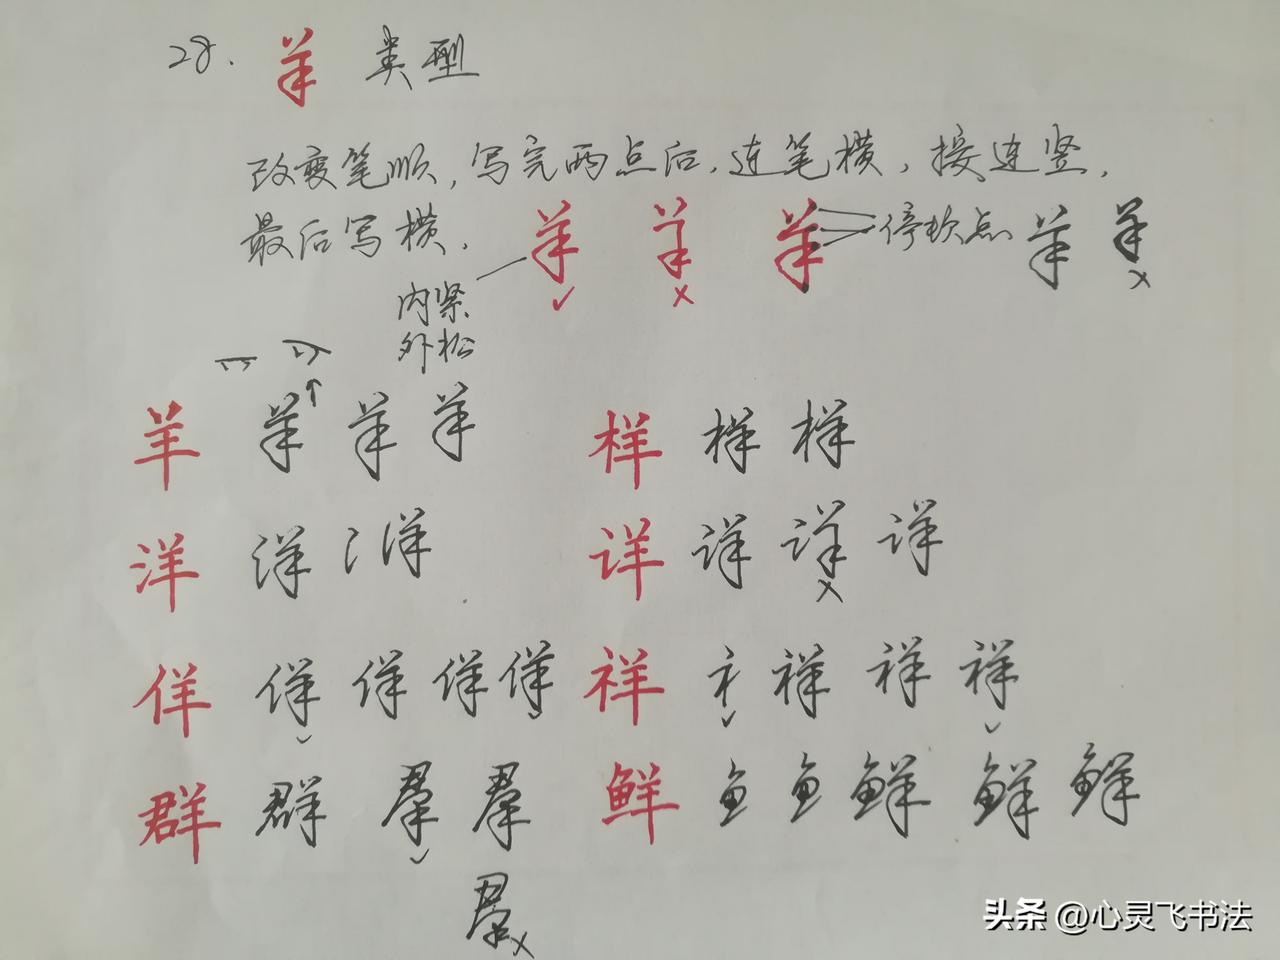 28. 羊 类型
改变笔顺,写完两点后,连笔横,接连竖,
最后写横. 羊 羊 羊 停软点 羊 羊
内紧
外松
羊 羊 羊 羊 样 样 样
洋 洋 氵 洋 详 详 详 详
佯 佯 佯 佯 佯 祥 礻 祥 祥 祥
群 群 羣 羣 鲜 鱼 鱼 鲜 鲜 鲜
羣
头条 @心灵飞书法